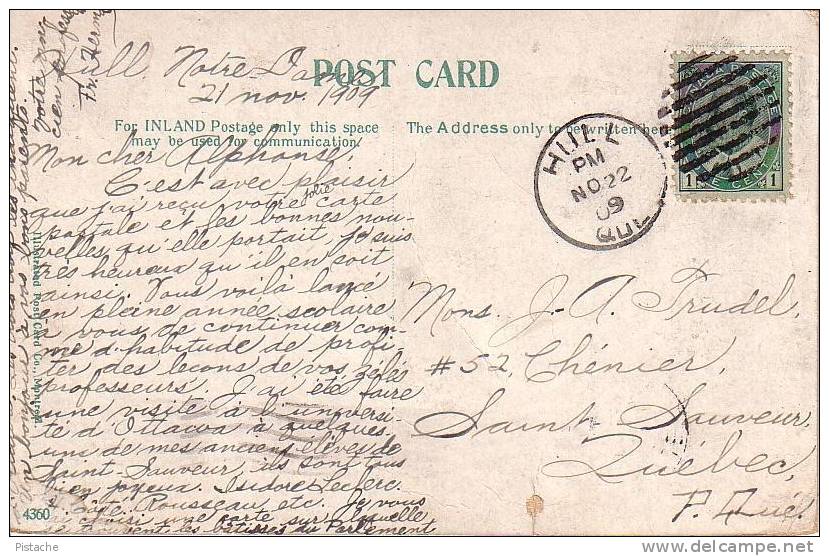 POST CARD
For INLAND Postage only this space
may be used for communication.
The Address only to be written here
Hull Notre-Dame
21 nov. 1909
Mon cher Alphonse,
C'est avec plaisir
que j'ai reçu votre jolie carte
postale et les bonnes nou-
velles qu'elle portait, je suis
très heureux qu'il en soit
ainsi. Vous voilà lancé
en pleine année scolaire
à vous de continuer com-
me d'habitude de profi-
ter des leçons de vos zélés
professeurs. J'ai été faire
une visite à l'universi-
té d'Ottawa à quelques
uns de mes anciens élèves de
Saint-Sauveur, ils sont tous
bien joyeux. Isidore Leclerc
Rousseau etc. Je vous
choisi une carte sur laquelle
se trouvent les bâtisses du Parlement
bonjour à vos bons parents.
Votre
HULL
PM
NO 22
09
QUE
1 CENT 1
Mons. J. A. Trudel,
#52, Chénier,
Saint Sauveur
Québec,
P. Qué.
Illustrated Post Card Co., Montreal
4360
Pistache
delcampe.net